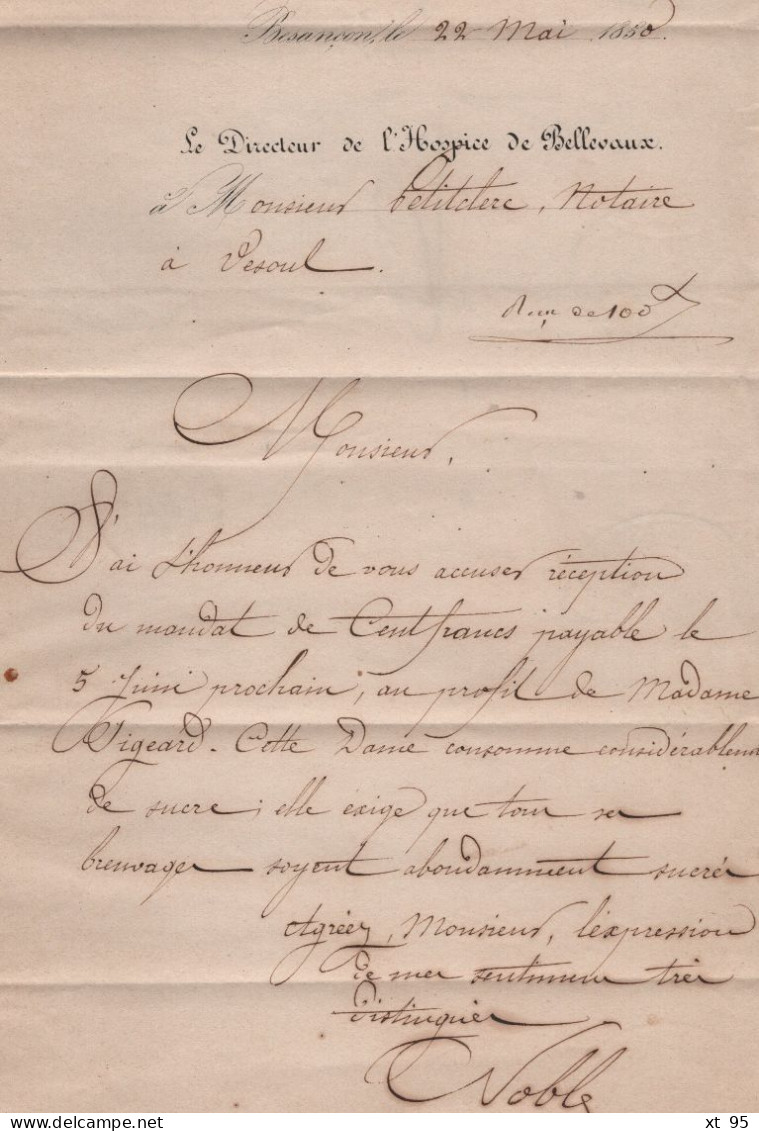 Besançon, le 22 Mai 1850.
Le Directeur de l'Hospice de Bellevaux.
à Monsieur Petitclerc, Notaire
à Vesoul.
de 100 f
Monsieur,
J'ai l'honneur de vous accuser réception
du mandat de Cent francs payable le
5 Juin prochain, au profit de Madame
Figeard. Cette Dame consomme considérablem
de sucre ; elle éxige que tous ses
breuvages soyent abondamment sucrés
Agréez, Monsieur, l'éxpression
de mes sentimens très
distingués
Noble
xt 95